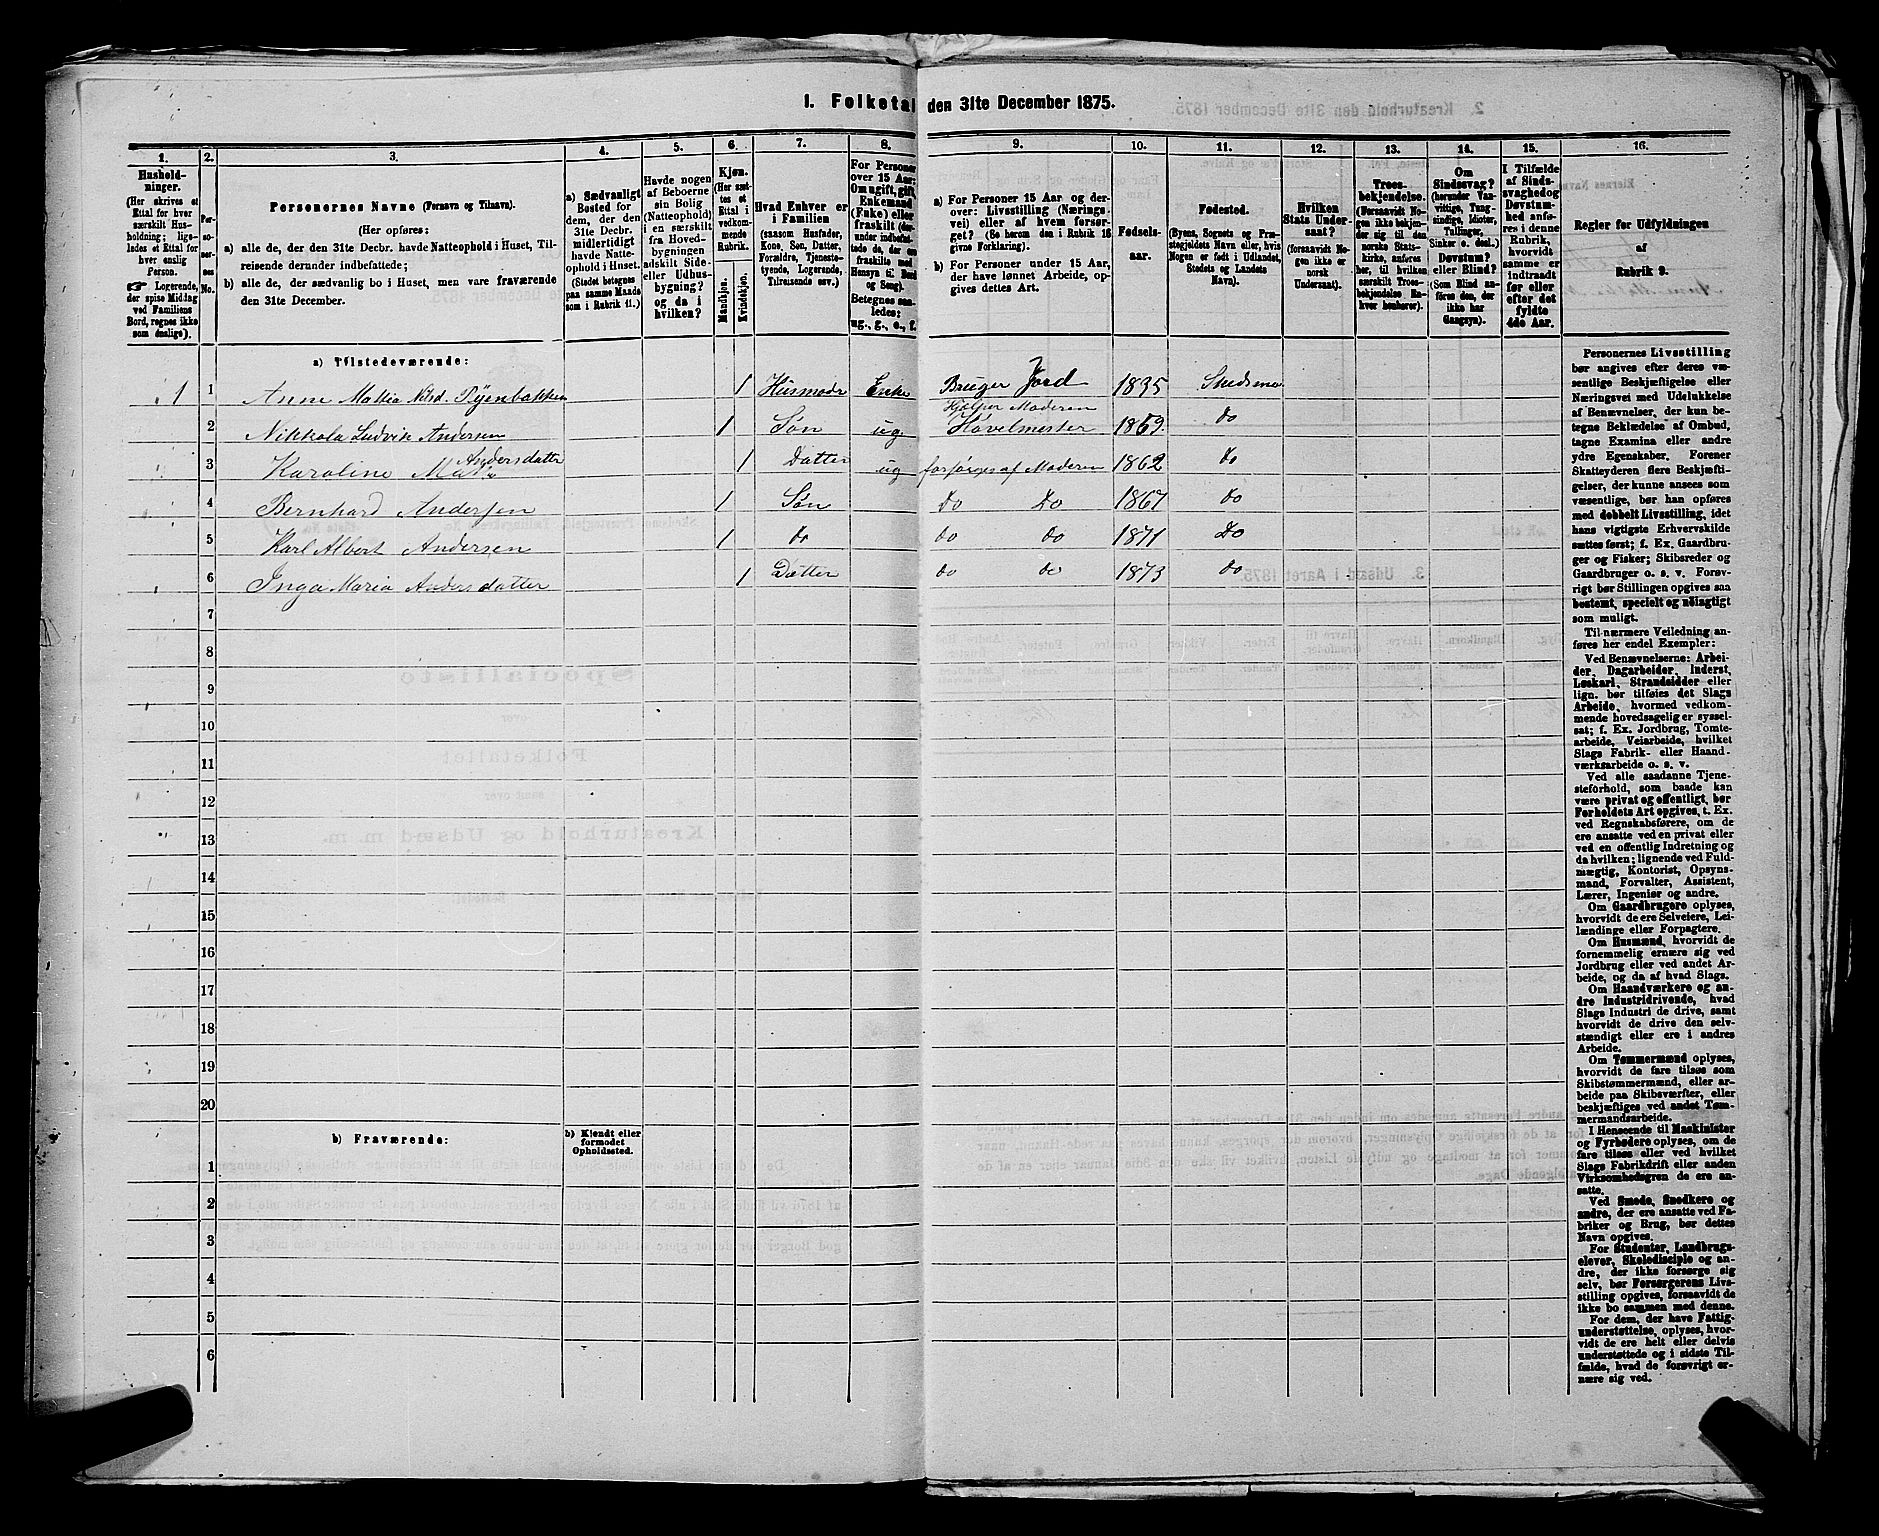 1. Folketal den 31te December 1875.
1. 2. 3. 4. 5. 6. 7. 8. 9. 10. 11. 12. 13. 14. 15. 16.
Hushold-
ninger.
(Her skrives et
Ettal for hver
særskilt Hus-
holdning; lige-
ledes et Ettal for
hver enslig
Person.
☞ Logerende,
der spise Middag
ved Familiens
Bord, regnes ikke
som enslige).
Per-
so-
ner-
nes
No.
Personernes Navne (Fornavn og Tilnavn).
(Her opføres:
a) alle de, der den 31te Decbr. havde Natteophold i Huset, Til-
reisende derunder indbefattede;
b) alle de, der sædvanlig bo i Huset, men vare fraværende
den 31te December.
a) Sædvanligt
Bosted for
dem, der den
31te Decbr.
midlertidigt
havde Natte-
ophold i Huset.
(Stedet betegnes
paa samme Maade
som i Rubrik 11.)
Havde nogen
af Beboerne
sin Bolig
(Natteophold)
i en særskilt
fra Hoved-
bygningen
adskilt Side-
eller Udhus-
bygning?
og da i
hvilken?
Kjøn.
(Her sæt-
tes et
Ettal i
vedkom-
mende
Rubrik.
Mandkjøn.
Kvindekjøn.
Hvad Enhver er
i Familien
(saasom Husfader,
Kone, Søn, Datter,
Forældre, Tjeneste-
tyende, Logerende,
Tilreisende osv.)
For Personer
over 15 Aar:
Om ugift, gift,
Enkemand
(Enke) eller
fraskilt (der-
under indbefat-
tede de, der ere
fraskilte med
Hensyn til Bord
og Seng).
Betegnes saa-
ledes:
ug., g., e., f.
a) For Personer 15 Aar og der-
over: Livsstilling (Nærings-
vei) eller af hvem forsør-
get? (Se herom den i Rubrik 16
givne Forklaring).
b) For Personer under 15 Aar,
der have lønnet Arbeide, op-
gives dettes Art.
Fødsels-
aar.
Fødested.
(Byens, Sognets og Præ-
stegjeldets Navn eller, hvis
Nogen er født i Udlandet,
Stedets og Landets
Navn).
Hvilken
Stats Under-
saat?
(forsaavidt No-
gen ikke er
norsk
Undersaat).
Troes-
bekjendelse.
(Forsaavidt No-
gen ikke bekjen-
der sig til den
norske Stats-
kirke, anføres
her, til hvilken
særskilt Troes-
bekjendelse En-
hver henhører).
Om
Sindssvag?
(herunder Van-
vittige, Tung-
sindige, Idioter,
Tullinger,
Sinker o. desl.)
Døvstum?
eller Blind?
(Som Blind an-
føres den, der
ikke har
Gangsyn).
I Tilfælde
af Sinds-
svaghed og
Døvstum-
hed anfø-
res i denne
Rubrik,
hvorvidt
samme er
indtraadt
før eller
efter det
fyldte
4de Aar.
Regler for Udfyldningen
af
Rubrik 9.
a) Tilstedeværende:
1 1 Anne Mathia Nilsd. 1 Husmoder Enke Bruger Jord 1835 Skedsmo
2 Nikkola Ludvik Andersen 1 Søn ug. Hjelper Moderen Høvelmester 1859. do
3 Karoline Andersdatter 1 Datter ug forsørges af Moderen 1862 do
4 Bernhard Andersen 1 Søn do do 1867 do
5 Karl Albert Andersen 1 do do do 1871 do
6 Inga Maria Andersdatter 1 Datter do do 1873 do
7
8
9
10
11
12
13
14
15
16
17
18
19
20
b) Fraværende:
b) Kjendt eller
formodet
Opholdssted.
1
2
3
4
5
6
Personernes Livsstilling
bør angives efter deres væ-
sentlige Beskjæftigelse eller
Næringsvei med Udelukkelse
af Benævnelser, der kun be-
tegne Beklædelse af Ombud,
tagne Examina eller andre
ydre Egenskaber. Forener
Skatteyderen flere Beskjæfti-
gelser, der kunne ansees som
væsentlige, bør han opføres
med dobbelt Livsstilling, idet
hans vigtigste Erhvervskilde
sættes først; f. Ex. Gaardbru-
ger og Fisker; Skibsreder og
Gaardbruger o. s. v. Forøv-
rigt bør Stillingen opgives saa
bestemt, specielt og nøiagtigt
som muligt.
Til nærmere Veiledning an-
føres her endel Exempler:
Ved Benævnelserne: Arbei-
der, Dagarbeider, Inderst,
Løskarl, Strandsidder eller
lign. bør tilføies det Slags
Arbeide, hvormed vedkom-
mende hovedsagelig er syssel-
sat; f. Ex. Jordbrug, Tomte-
arbeide, Veiarbeide, hvilket
Slags Fabrik- eller Haand-
værksarbeide o. s. v.
Ved alle saadanne Tjene-
steforhold, som baade kan
være privat og offentligt, bør
Forholdets Art opgives, t. Ex.
ved Regnskabsførere, om de
ere ansatte ved en privat eller
ved en offentlig Indretning og
da hvilken; lignende ved Fuld-
mægtig, Kontorist, Opsyns-
mand, Forvalter, Assistent,
Lærer, Ingeniør og andre.
Om Gaardbrugere oplyses,
hvorvidt de ere Selveiere, Lei-
lændinge eller Forpagtere.
Om Husmænd, hvorvidt de
fornemmelig ernære sig ved
Jordbrug eller ved andet Ar-
beide, og da af hvad Slags.
Om Haandværkere og an-
dre Industridrivende, hvad
Slags Industri de drive, samt
hvorvidt de drive den selv-
stændigt eller ere i andres
Arbeide.
Om Tømmermænd oplyses,
hvorvidt de fare tilsøs som
Skibstømmermænd, eller ar-
beide paa Skibsværfter, eller
beskjæftiges ved andet Tøm-
mermandsarbeide.
I Henseende til Maskinister
og Fyrbødere oplyses, om de
fare tilsøs eller ved hvilket
Slags Fabrikdrift eller anden
Virksomhedsgren de ere an-
satte.
Ved Smede, Snedkere og
andre, der ere ansatte ved Fa-
briker og Brug, bør dettes
Navn opgives.
For Studenter, Landbrugs-
elever, Skoledisciple og an-
dre, der ikke forsørge sig
selv, bør Forsørgerens Livs-
stilling opgives, forsaavidt de
ikke bo sammen med denne.
For dem, der have Fattig-
understøttelse, oplyses, hvor-
vidt de ere helt eller delvis
understøttede og i sidste Til-
fælde, hvad de forøvrigt er-
nære sig ved.